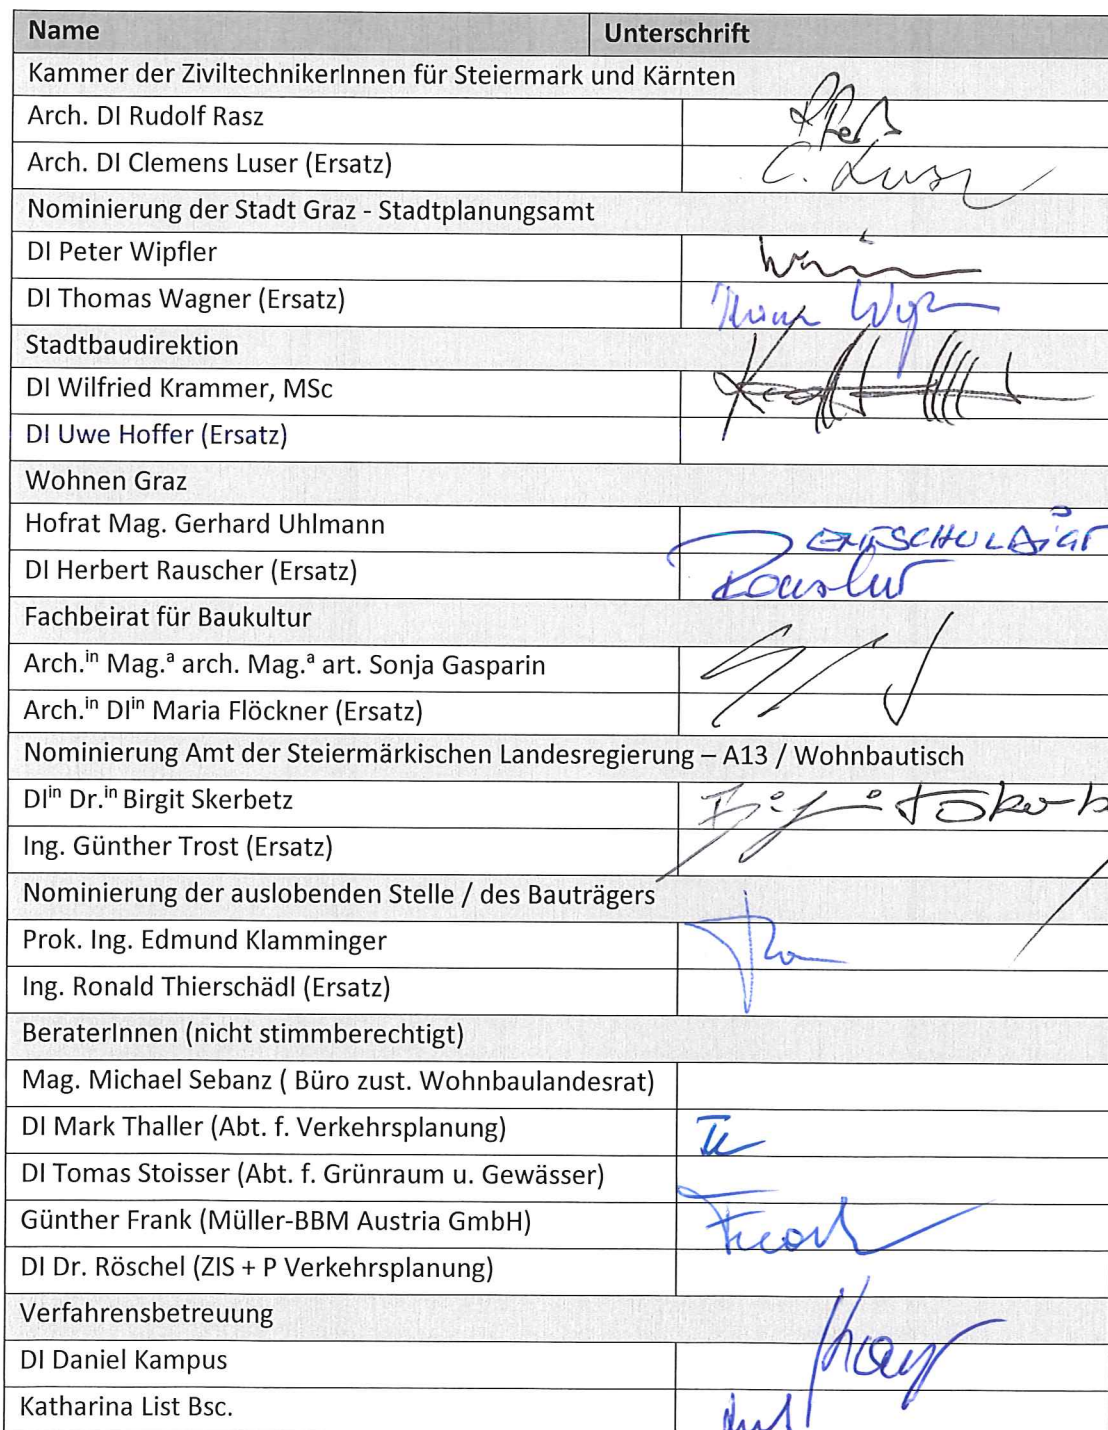 Name Unterschrift
Kammer der ZiviltechnikerInnen für Steiermark und Kärnten
Arch. DI Rudolf Rasz
Arch. DI Clemens Luser (Ersatz) C. Luser
Nominierung der Stadt Graz - Stadtplanungsamt
DI Peter Wipfler
DI Thomas Wagner (Ersatz)
Stadtbaudirektion
DI Wilfried Krammer, MSc
DI Uwe Hoffer (Ersatz)
Wohnen Graz
Hofrat Mag. Gerhard Uhlmann ENTSCHULDIGT
DI Herbert Rauscher (Ersatz) Rauscher
Fachbeirat für Baukultur
Arch.ⁱⁿ Mag.ª arch. Mag.ª art. Sonja Gasparin
Arch.ⁱⁿ DIⁱⁿ Maria Flöckner (Ersatz)
Nominierung Amt der Steiermärkischen Landesregierung – A13 / Wohnbautisch
DIⁱⁿ Dr.ⁱⁿ Birgit Skerbetz
Ing. Günther Trost (Ersatz)
Nominierung der auslobenden Stelle / des Bauträgers
Prok. Ing. Edmund Klamminger
Ing. Ronald Thierschädl (Ersatz)
BeraterInnen (nicht stimmberechtigt)
Mag. Michael Sebanz ( Büro zust. Wohnbaulandesrat)
DI Mark Thaller (Abt. f. Verkehrsplanung)
DI Tomas Stoisser (Abt. f. Grünraum u. Gewässer)
Günther Frank (Müller-BBM Austria GmbH)
DI Dr. Röschel (ZIS + P Verkehrsplanung)
Verfahrensbetreuung
DI Daniel Kampus
Katharina List Bsc.